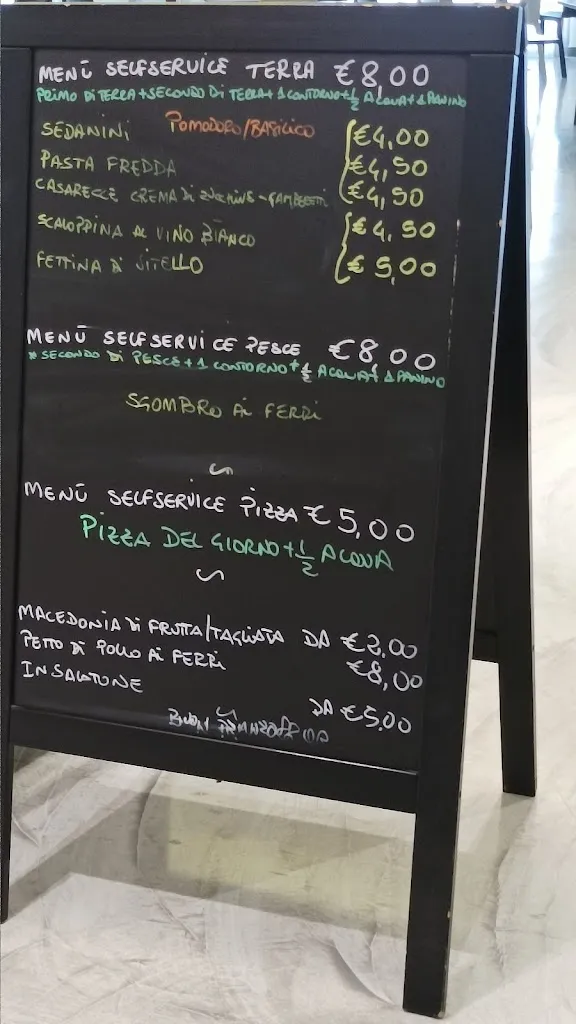 MENÙ SELFSERVICE TERRA €8,00
PRIMO DI TERRA+SECONDO DI TERRA+1 CONTORNO+½ ACQUA+1 PANINO
SEDANINI POMODORO/BASILICO €4,00
PASTA FREDDA €4,50
CASARECCE CREMA DI ZUCCHINE-GAMBERETTI €4,50
SCALOPPINA AL VINO BIANCO €4,50
FETTINA DI VITELLO €5,00
MENÙ SELFSERVICE PESCE €8,00
* SECONDO DI PESCE+1 CONTORNO+½ ACQUA+1 PANINO
SGOMBRO AI FERRI
MENÙ SELFSERVICE PIZZA €5,00
PIZZA DEL GIORNO+½ ACQUA
MACEDONIA DI FRUTTA/TAGLIATA DA €2,00
PETTO DI POLLO AI FERRI €8,00
INSALATONE DA €5,00
BUON PRANZO